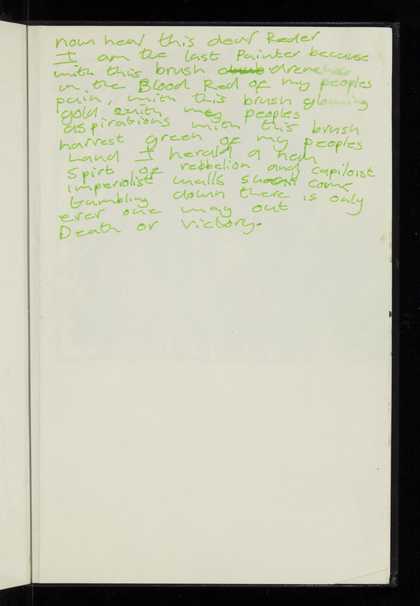 now hear this dear Reder
I am the last Painter because
with this brush drenched
in the Blood Red of my peoples
pain, with this brush glowing
gold with mey peoples
aspirations with this brush
harvest green of my peoples
Land I herald a new
Spirt of rebbelion and capiloist
imperialist walls shall come
tumbling down there is only
ever one way out
Death or Victory.